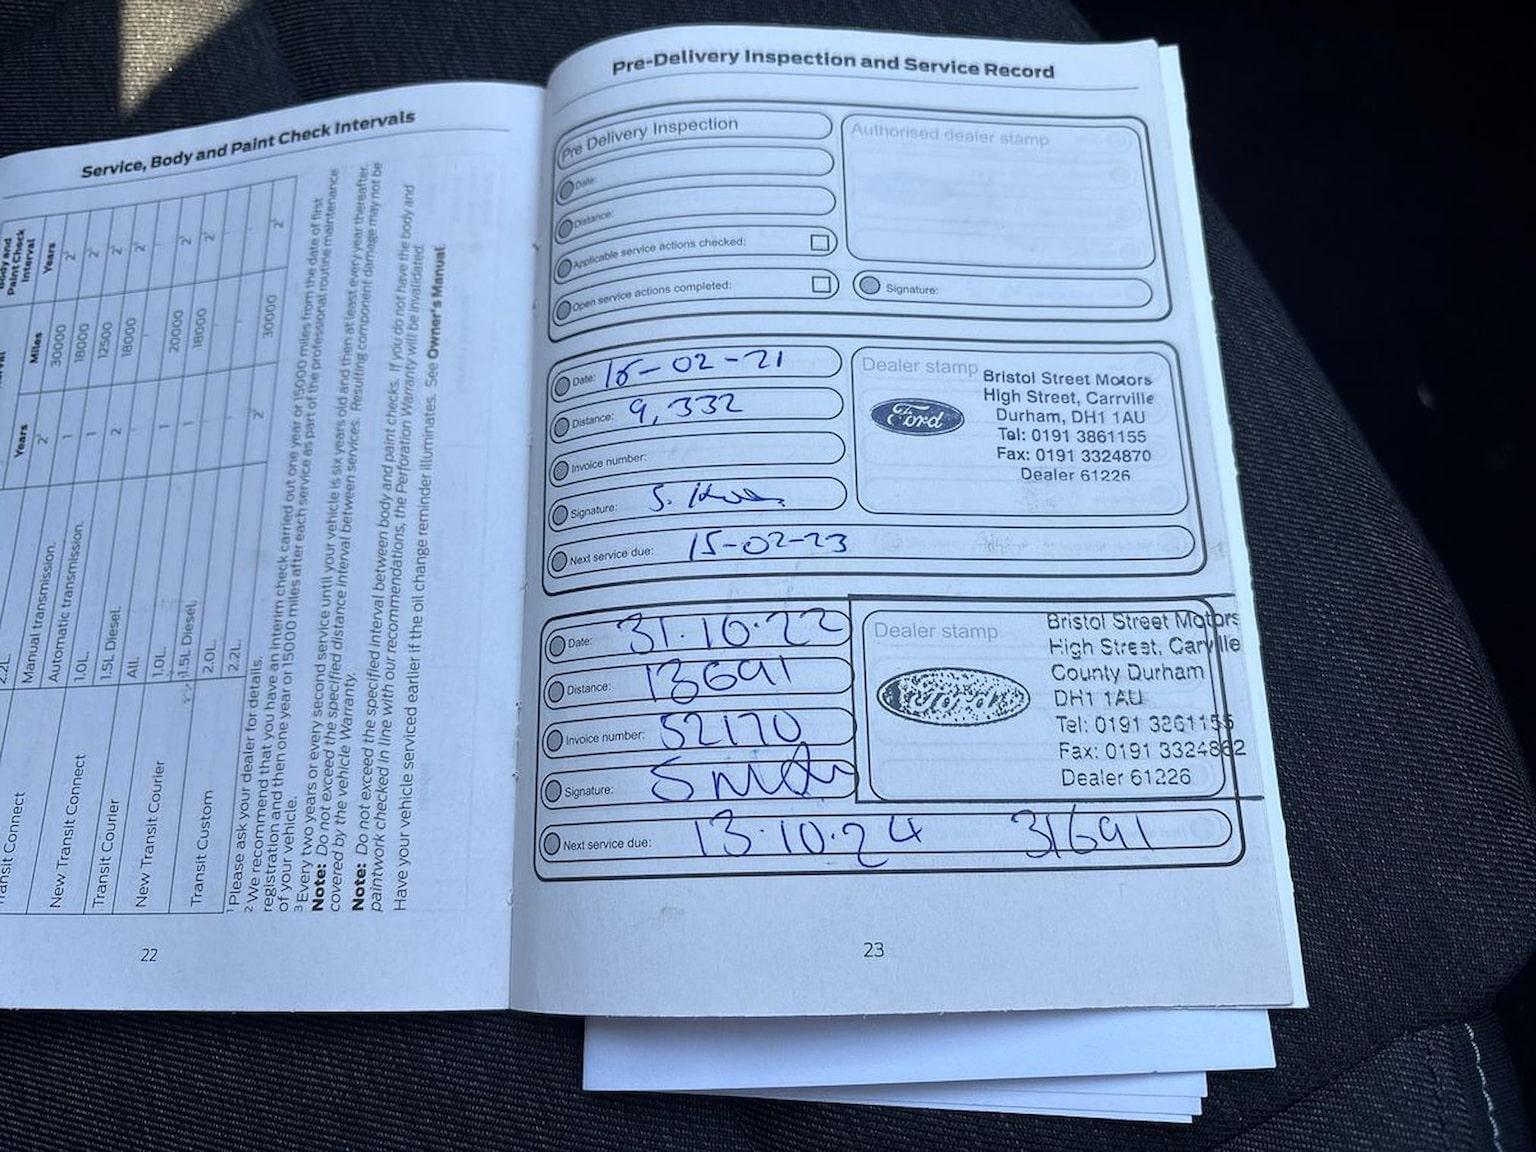 Service, Body and Paint Check Intervals
Body and Paint Check Interval
Years Miles Years
Transit Connect 2.2L.
New Transit Connect Manual transmission. 2² 30000 2¹
Automatic transmission. 1 18000 2¹
Transit Courier 1.0L. 1 12500 2¹
1.5L Diesel. 2 18000 2¹
New Transit Courier All. - - -
1.0L. 1 20000 2¹
Transit Custom 1.5L Diesel. 1 18000 2¹
2.0L. - - -
2.2L. 2² 30000 2¹
¹ Please ask your dealer for details.
² We recommend that you have an interim check carried out one year or 15000 miles from the date of first
registration and then one year or 15000 miles after each service as part of the professional routine maintenance
of your vehicle.
³ Every two years or every second service until your vehicle is six years old and then at least every year thereafter.
Note: Do not exceed the specified distance interval between services. Resulting component damage may not be
covered by the vehicle Warranty.
Note: Do not exceed the specified interval between body and paint checks. If you do not have the body and
paintwork checked in line with our recommendations, the Perforation Warranty will be invalidated.
Have your vehicle serviced earlier if the oil change reminder illuminates. See Owner's Manual
22
Pre-Delivery Inspection and Service Record
Pre Delivery Inspection
Date:
Distance:
Applicable service actions checked:
Open service actions completed:
Authorised dealer stamp
Signature:
Date: 15-02-21
Distance: 9,332
Invoice number:
Signature:
Next service due: 15-02-23
Dealer stamp
Ford
Bristol Street Motors
High Street, Carrville
Durham, DH1 1AU
Tel: 0191 3861155
Fax: 0191 3324870
Dealer 61226
Date: 31.10.22
Distance: 13691
Invoice number: 52170
Signature:
Next service due: 13.10.24 31691
Dealer stamp
Ford
Bristol Street Motors
High Street, Carville
County Durham
DH1 1AU
Tel: 0191 3861155
Fax: 0191 3324862
Dealer 61226
23